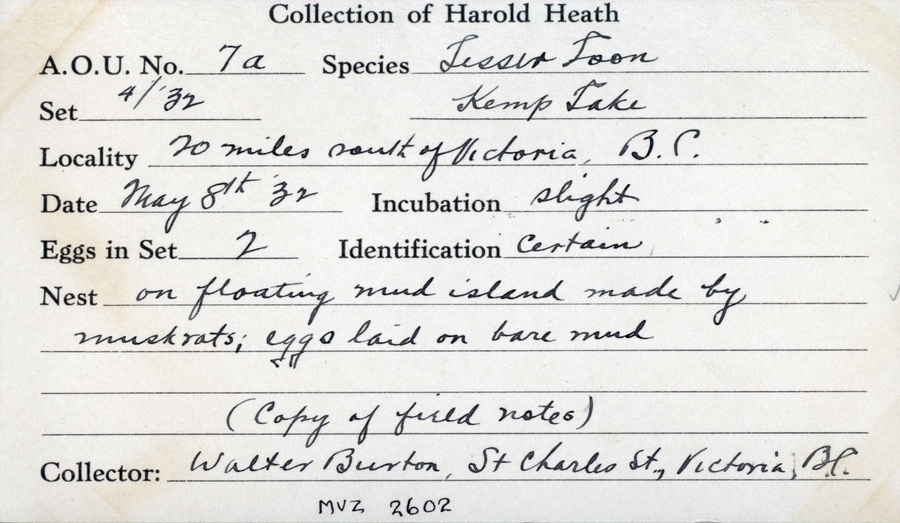 Collection of Harold Heath
A.O.U. No. 7a Species Lesser Loon
Set 4/'32 Kemp Lake
Locality 20 miles south of Victoria, B.C.
Date May 8th '32 Incubation slight
Eggs in Set 2 Identification Certain
Nest on floating mud island made by
muskrats; eggs laid on bare mud
(Copy of field notes)
Collector: Walter Burton, St Charles St., Victoria, B.C.
MVZ 2602